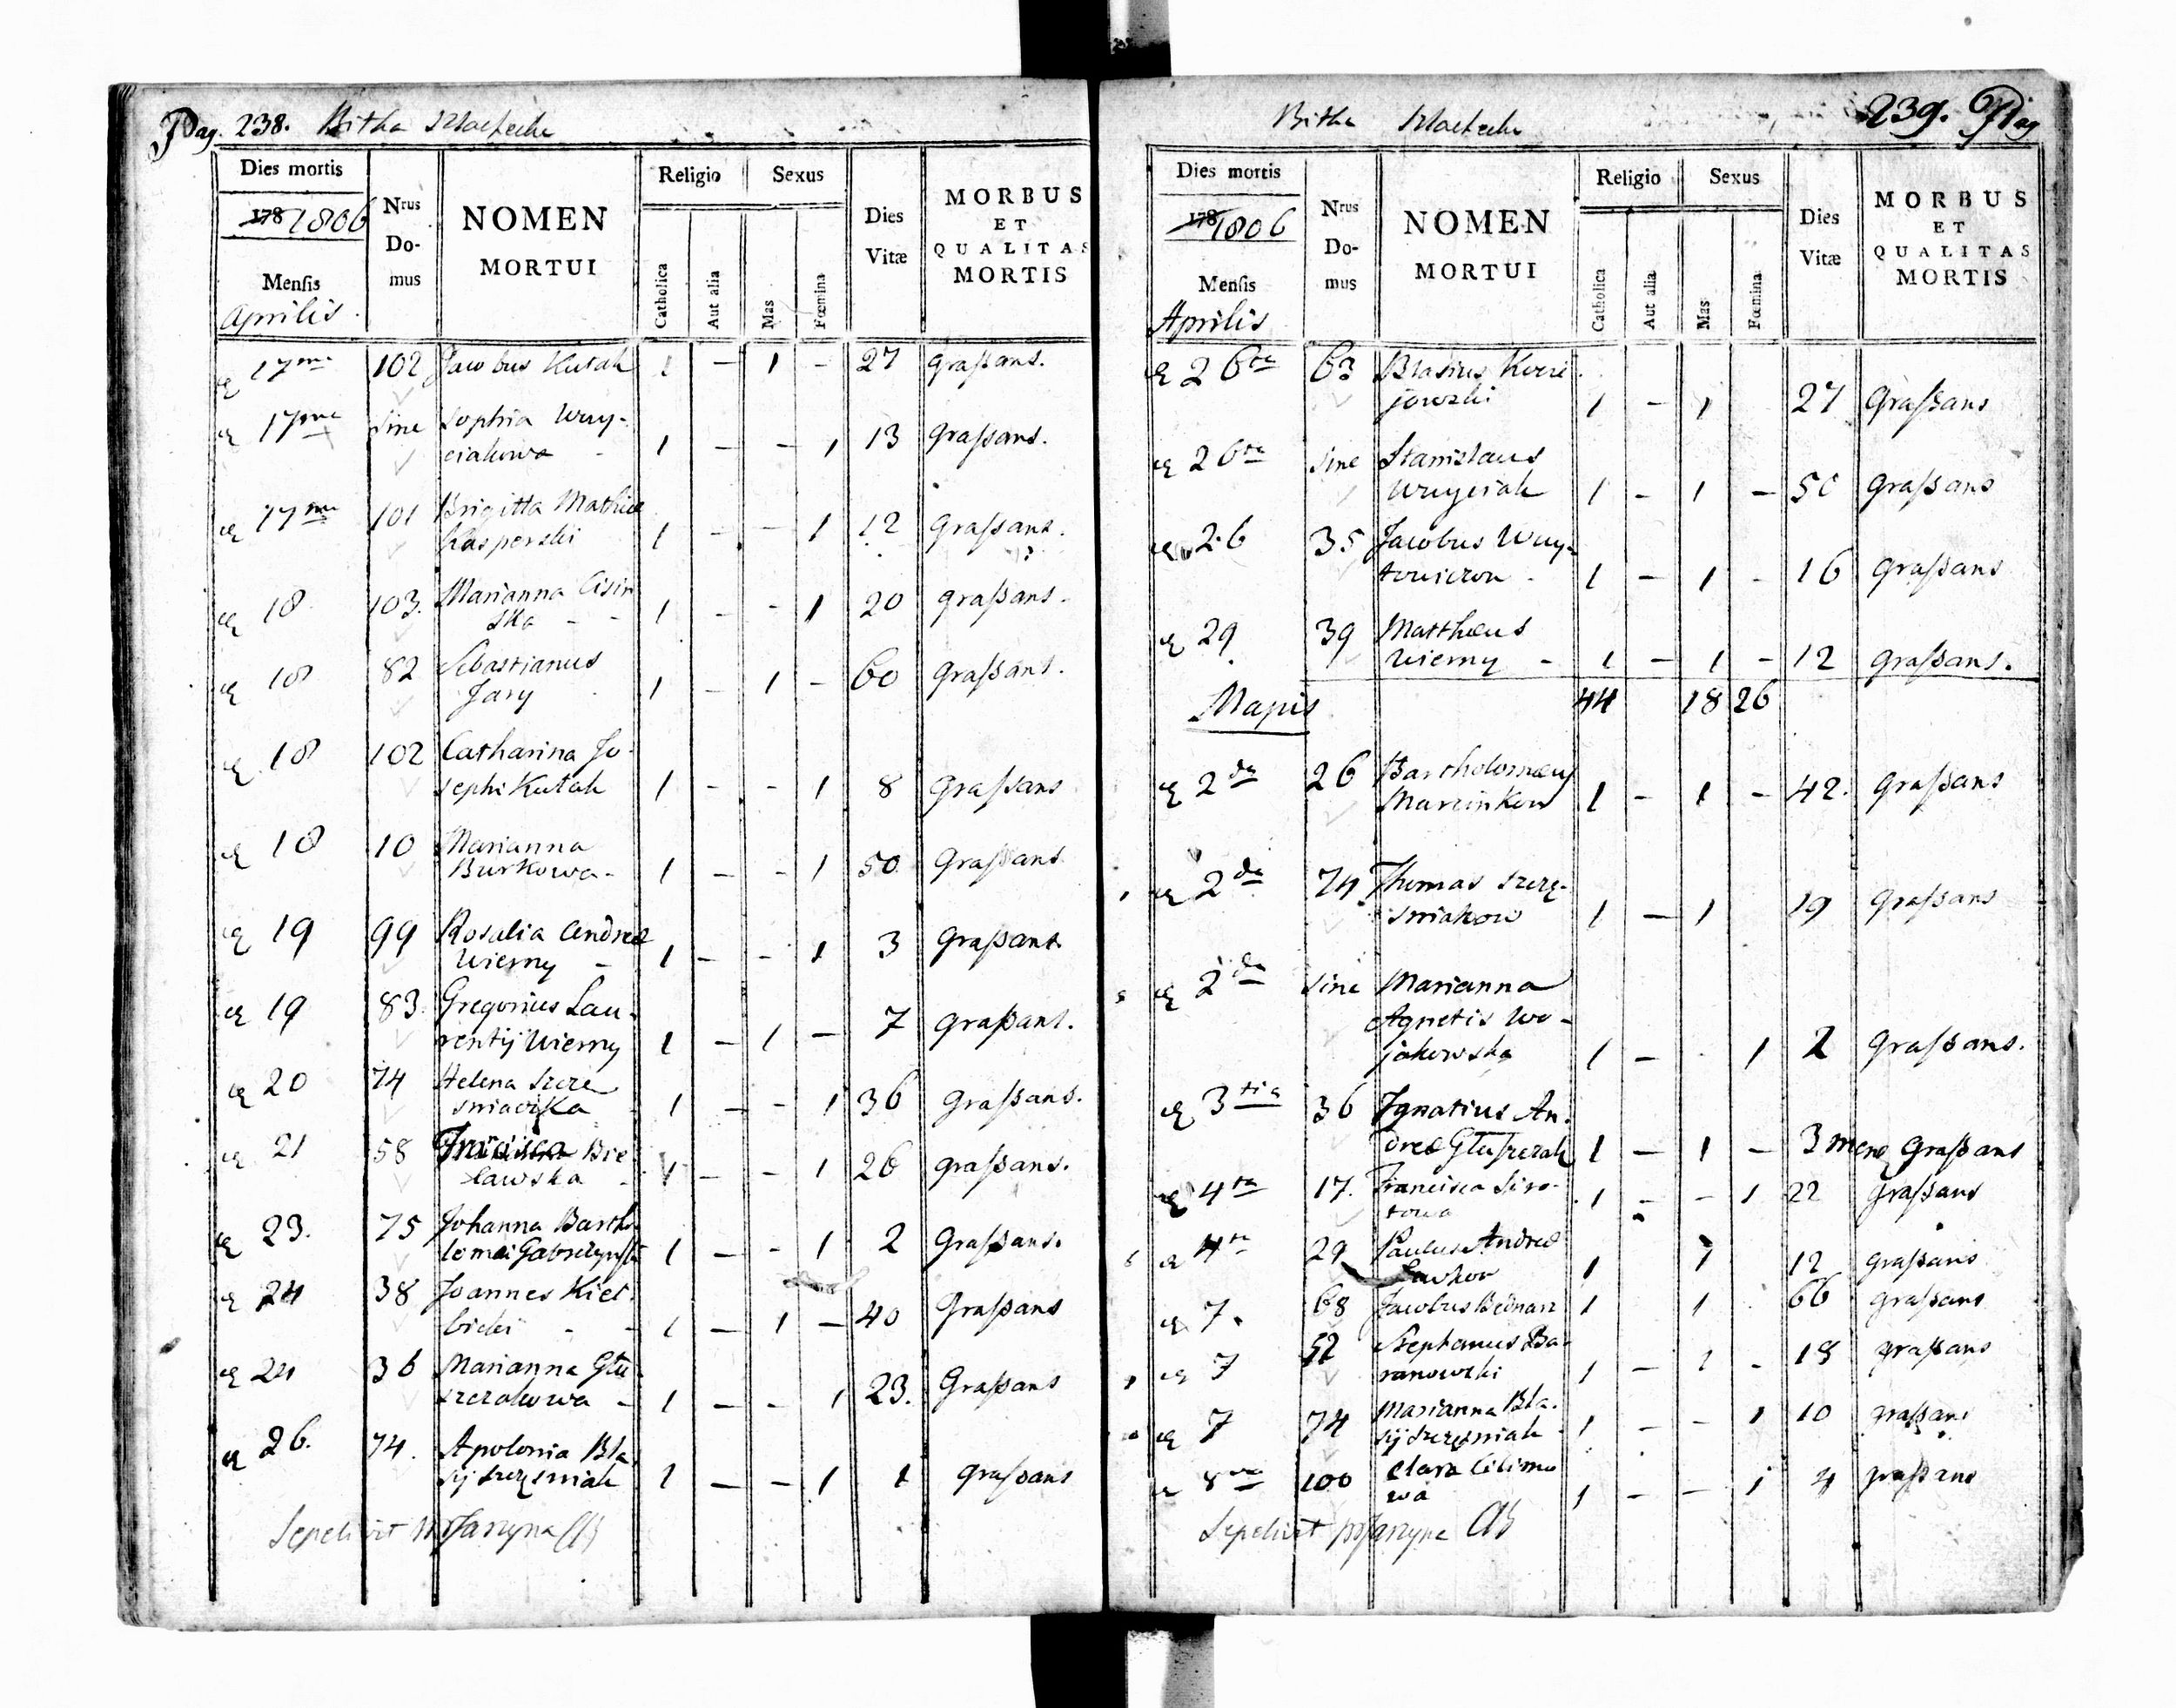 Pag. 238. Bitha Szlachecka
Dies mortis
1781806
Mensis
Aprilis
Nrus
Do-
mus
NOMEN
MORTUI
Religio
Catholica
Aut alia
Sexus
Mas
Fœmina
Dies
Vitæ
MORBUS
ET
QUALITAS
MORTIS
17ma 102 Jacobus Kutak 1 - 1 - 27 graßans.
17ma sine Sophia Wuy-
ciakowa - 1 - - 1 13 graßans.
17ma 101 Brigitta Mathiæ
Kasperski 1 - - 1 12 graßans.
18 103. Marianna Cisin
ska - - 1 - - 1 20 graßans.
18 82 Sebastianus
Jary 1 - 1 - 60 graßans.
18 102 Catharina Jo-
sephi Kutak 1 - - 1 8 graßans
18 10 Marianna
Burkowa - 1 - - 1 50 graßans
19 99 Rosalia Andreæ
Wierny - 1 - - 1 3 graßans
19 83 Gregorius Lau-
rentij Wierny 1 - 1 - 7 graßans.
20 74 Helena Szcze
sniaczka 1 - - 1 36 graßans.
21 58 Bie
lawska - 1 - - 1 26 graßans.
23. 75 Johanna Bartho
lomei 1 - - 1 2 Graßans.
24 38 Joannes Kieł
bicki - - 1 - 1 - 40 Graßans
24 36 Marianna Głu
szczakowa - 1 - - 1 23. Graßans
26. 74. Apolonia Bla
sij Szczęsniak 1 - - 1 1 graßans
Sepelivit
Bitha Szlachecka
239. Pag
Dies mortis
1781806
Mensis
Aprilis
Nrus
Do-
mus
NOMEN
MORTUI
Religio
Catholica
Aut alia
Sexus
Mas
Fœmina
Dies
Vitæ
MORBUS
ET
QUALITAS
MORTIS
26ta 63 Blasius
jowski 1 - 1 27 Graßans
26ta sine Stanislaus
Wuyciak 1 - 1 - 50 graßans
26 35 Jacobus Wuy-
towiczow - 1 - 1 - 16 graßans
29 39 Matthæus
Wierny - 1 - 1 - 12 graßans.
Majis 44 18 26
2da 26 Bartholomæus
Marcinkow 1 - 1 - 42. graßans
2da 74 Thomas Szczę-
sniakow 1 - 1 19 graßans
2da sine Marianna
Agnetis Wo-
jakowska 1 - - 1 2 graßans.
3tia 36 Ignatius An-
dreæ Głuszczak 1 - 1 - 3 mens Graßans
4ta 17. Francisca Siro-
towa 1 - - 1 22 graßans
4ta 29 Paulus Andreæ
1 1 12 graßans
7. 68 Jacobus Bednarz 1 1 66 graßans
7 52 Stephanus Ba-
ranowski 1 - 1 - 18 graßans
7 74 Marianna Bla-
sij Szczęsniak 1 - - 1 10 graßans
8va 100 Clara Cilimo
wa 1 - - 1 4 graßans
Sepelivit